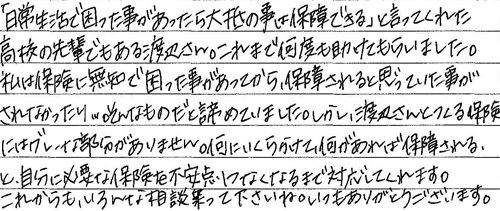 「日常生活で困った事があったら大抵の事は保障できる」と言ってくれた
高校の先輩でもある渡辺さん。これまで何度も助けてもらいました。
私は保険に無知で困った事があってから、保障されると思っていた事が
されなかったり…。そんなものだと諦めていました。しかし、渡辺さんとつくる保険
にはグレーな部分がありません。何にいくらかけて、何があれば保障される、
と、自分に必要な保険を不安点がなくなるまで対応してくれます。
これからも、いろんな相談乗って下さいね。いつもありがとうございます。